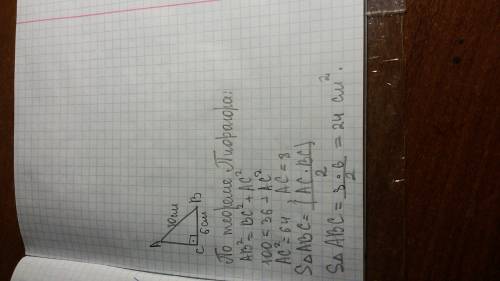 A
10см
C 6см B
По теореме Пифагора:
AB² = BC² + AC²
100 = 36 + AC²
AC² = 64 AC = 8
S△ABC = (AC·BC)/2
S△ABC = 8·6/2 = 24 см².